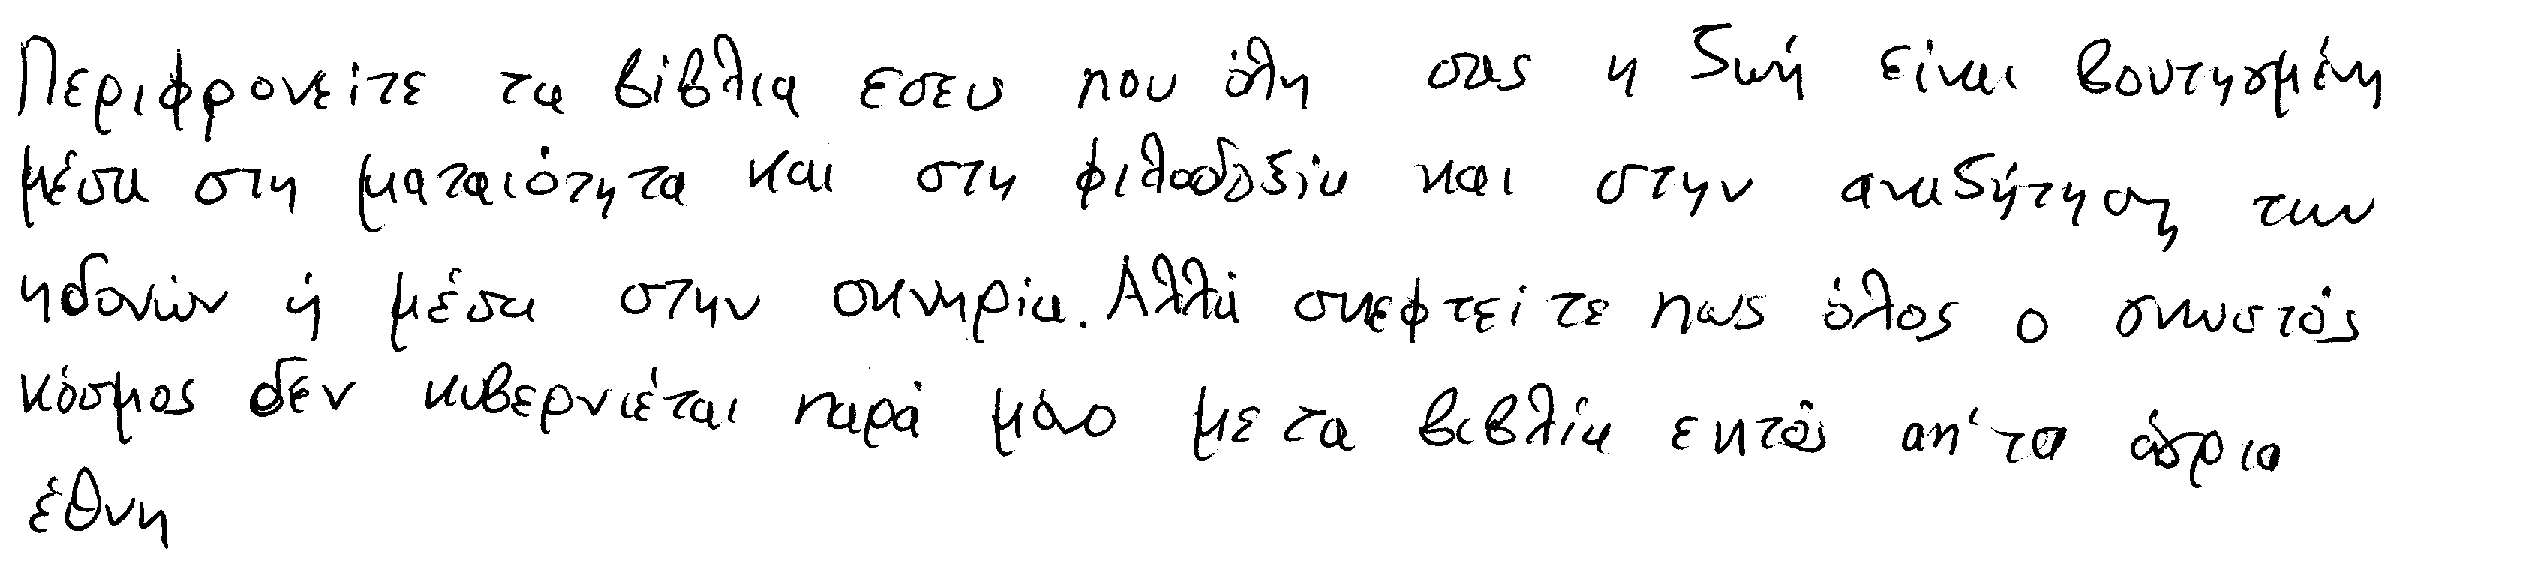 Περιφρονείτε τα βίβλια εσεις που όλη σας η ζωή είναι βουτησμένη
μέσα στη ματαιότητα και στη φιλοδοξία και στην αναζήτηση των
ηδονών ή μέσα στην οκνηρία. Αλλά σκεφτείτε πως όλος ο γνωστός
κόσμος δεν κυβερνιέται παρά μόνο με τα βιβλία εκτός απ'τα άγρια
έθνη